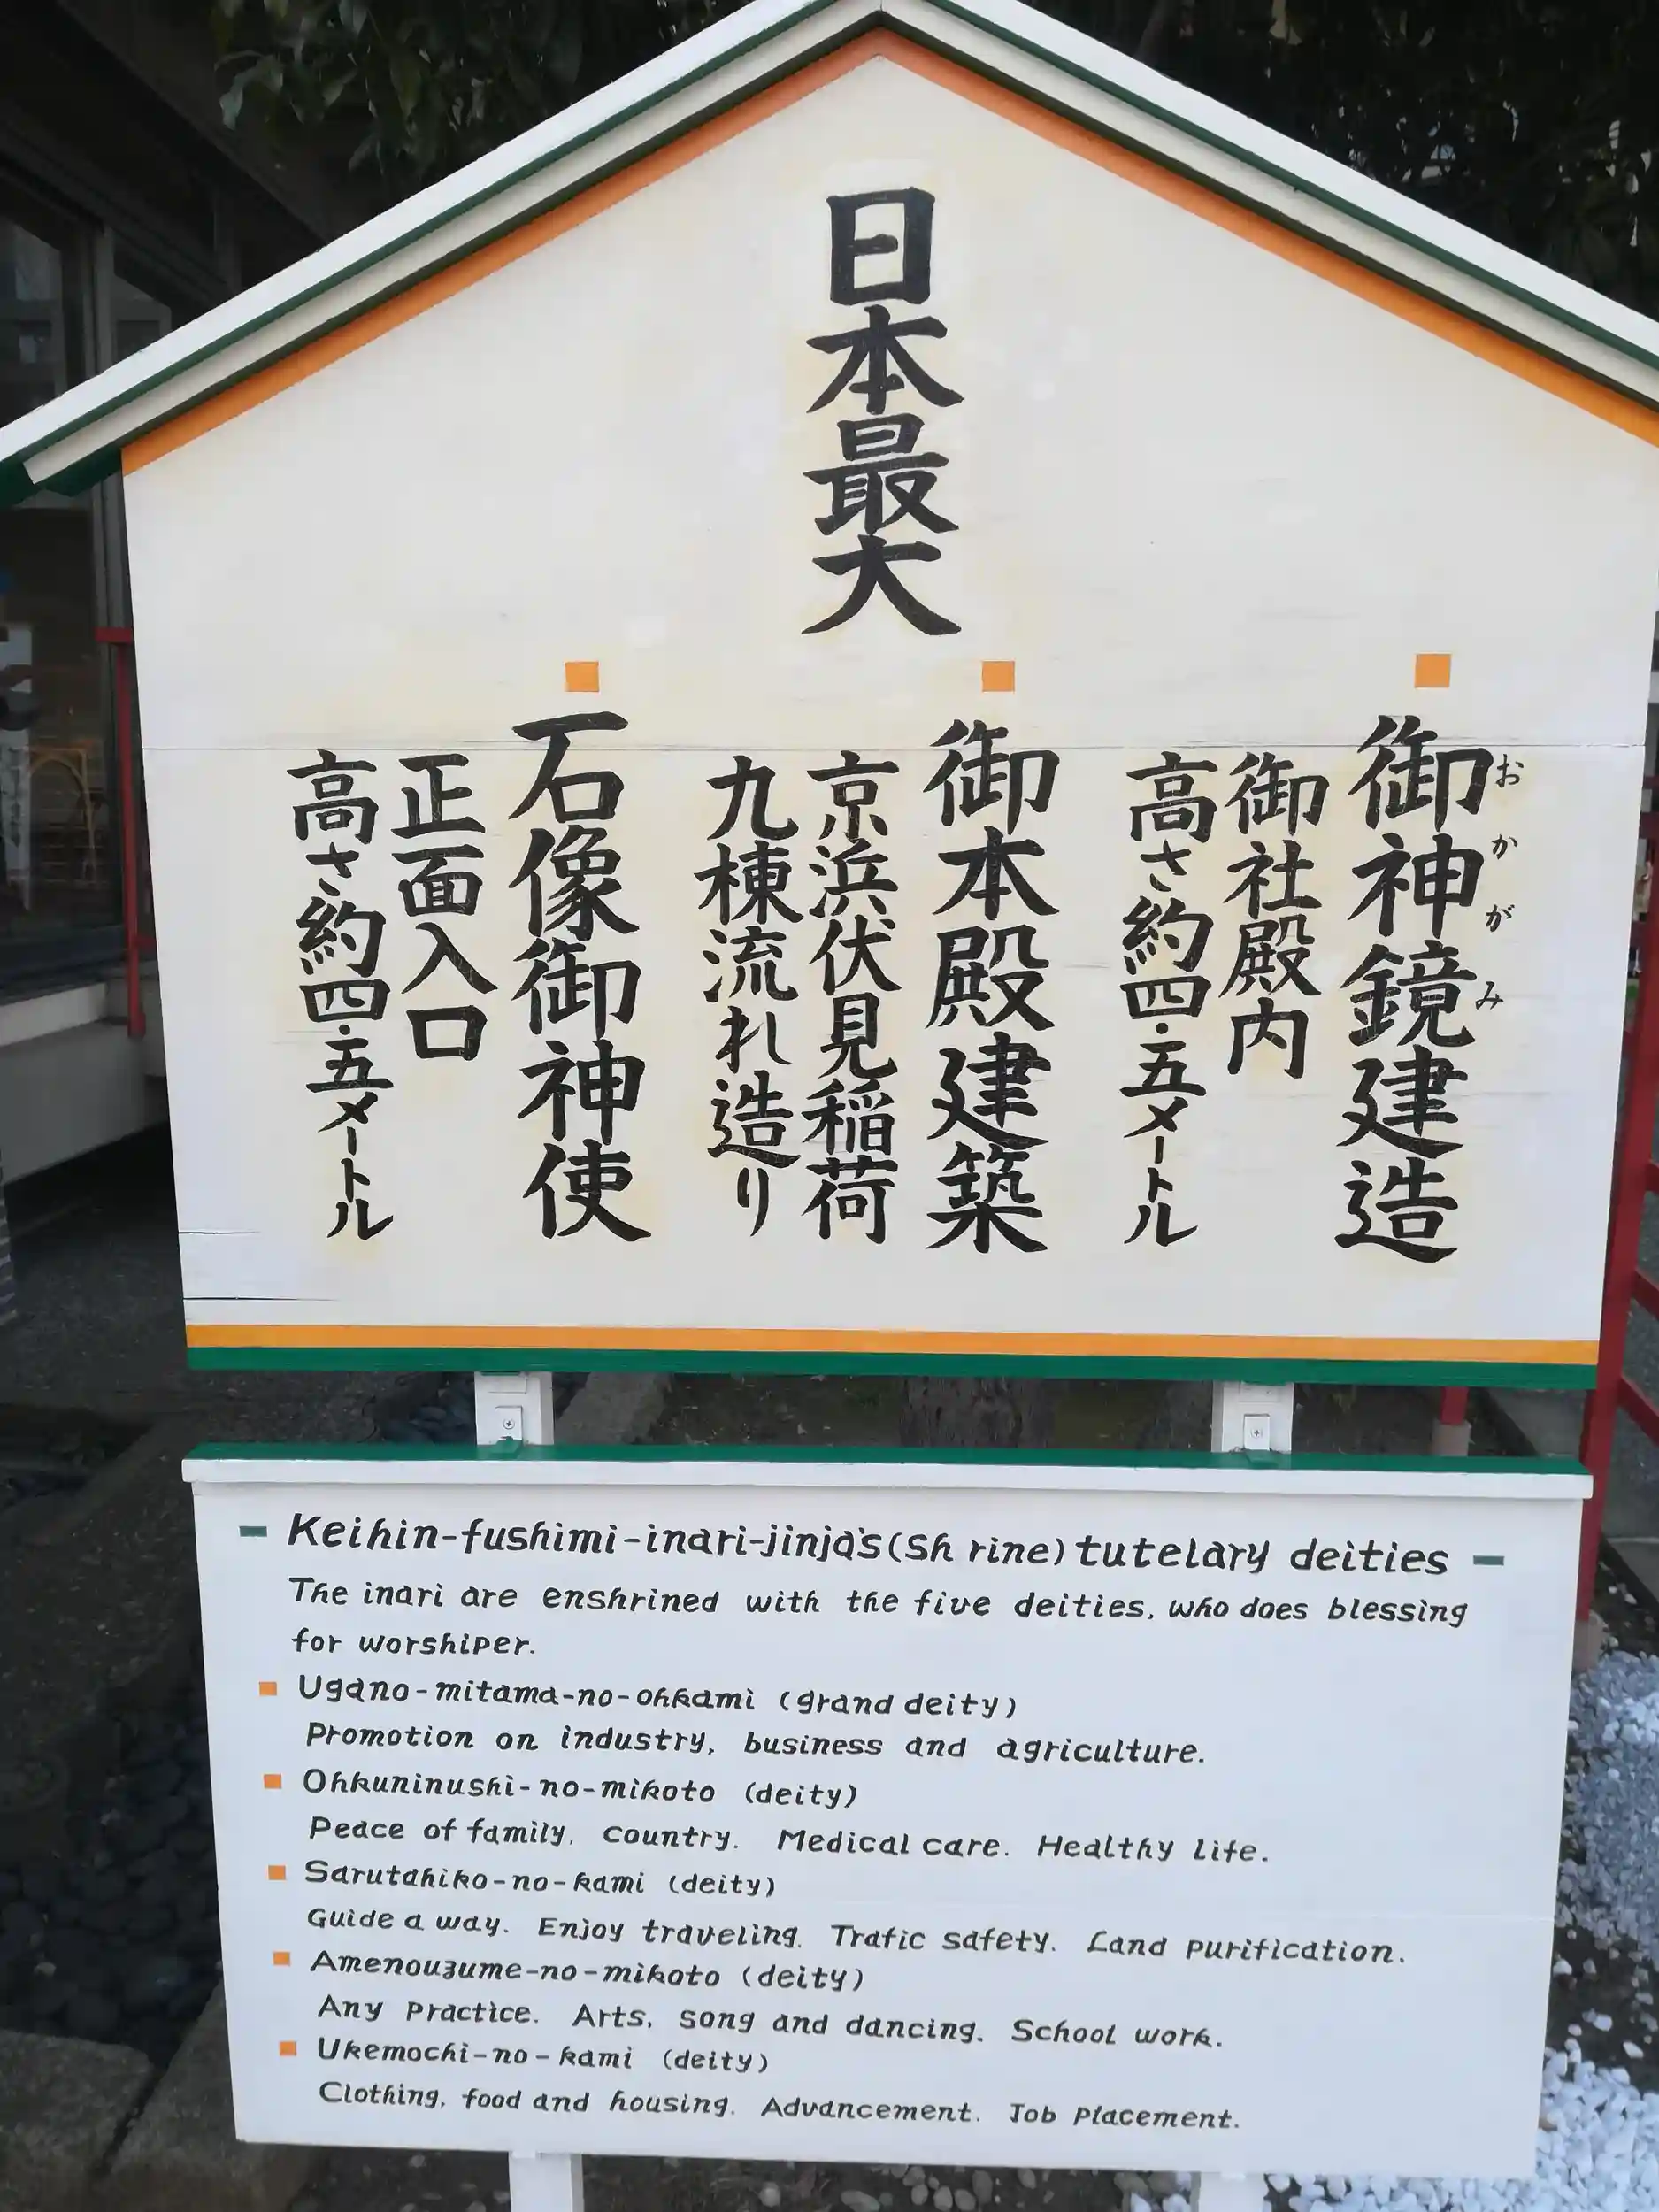 日本最大
■ 御神鏡建造
おかがみ
御社殿内
高さ約四・五メートル
■ 御本殿建築
京浜伏見稲荷
九棟流れ造り
■ 石像御神使
正面入口
高さ約四・五メートル
- Keihin-fushimi-inari-jinja's (Sh rine) tutelary deities -
The inari are enshrined with the five deities, who does blessing
for worshiper.
■ Ugano-mitama-no-ohkami (grand deity)
Promotion on industry, business and agriculture.
■ Ohkuninushi-no-mikoto (deity)
Peace of family. Country. Medical care. Healthy life.
■ Sarutahiko-no-kami (deity)
Guide a way. Enjoy traveling. Trafic safety. Land purification.
■ Amenouzume-no-mikoto (deity)
Any Practice. Arts, song and dancing. School work.
■ Ukemochi-no-kami (deity)
Clothing, food and housing. Advancement. Job Placement.